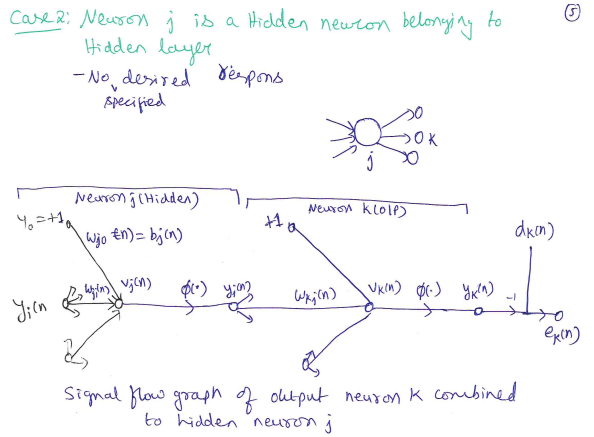 Case 2: Neuron j is a Hidden neuron belonging to
Hidden layer
5
- No desired respons
specified
k
j
Neuron j (Hidden)
Neuron k (O/P)
y₀ = +1
+1
dₖ(n)
wj₀ (n) = bj(n)
yi(n
wji(n)
vj(n)
φ(·)
yj(n)
wkj(n)
vk(n)
φ(·)
yk(n)
-1
ek(n)
Signal flow graph of output neuron k combined
to hidden neuron j